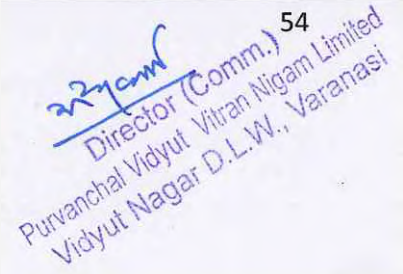 54
Director (Comm.)
Purvanchal Vidyut Vitran Nigam Limited
Vidyut Nagar D.L.W., Varanasi